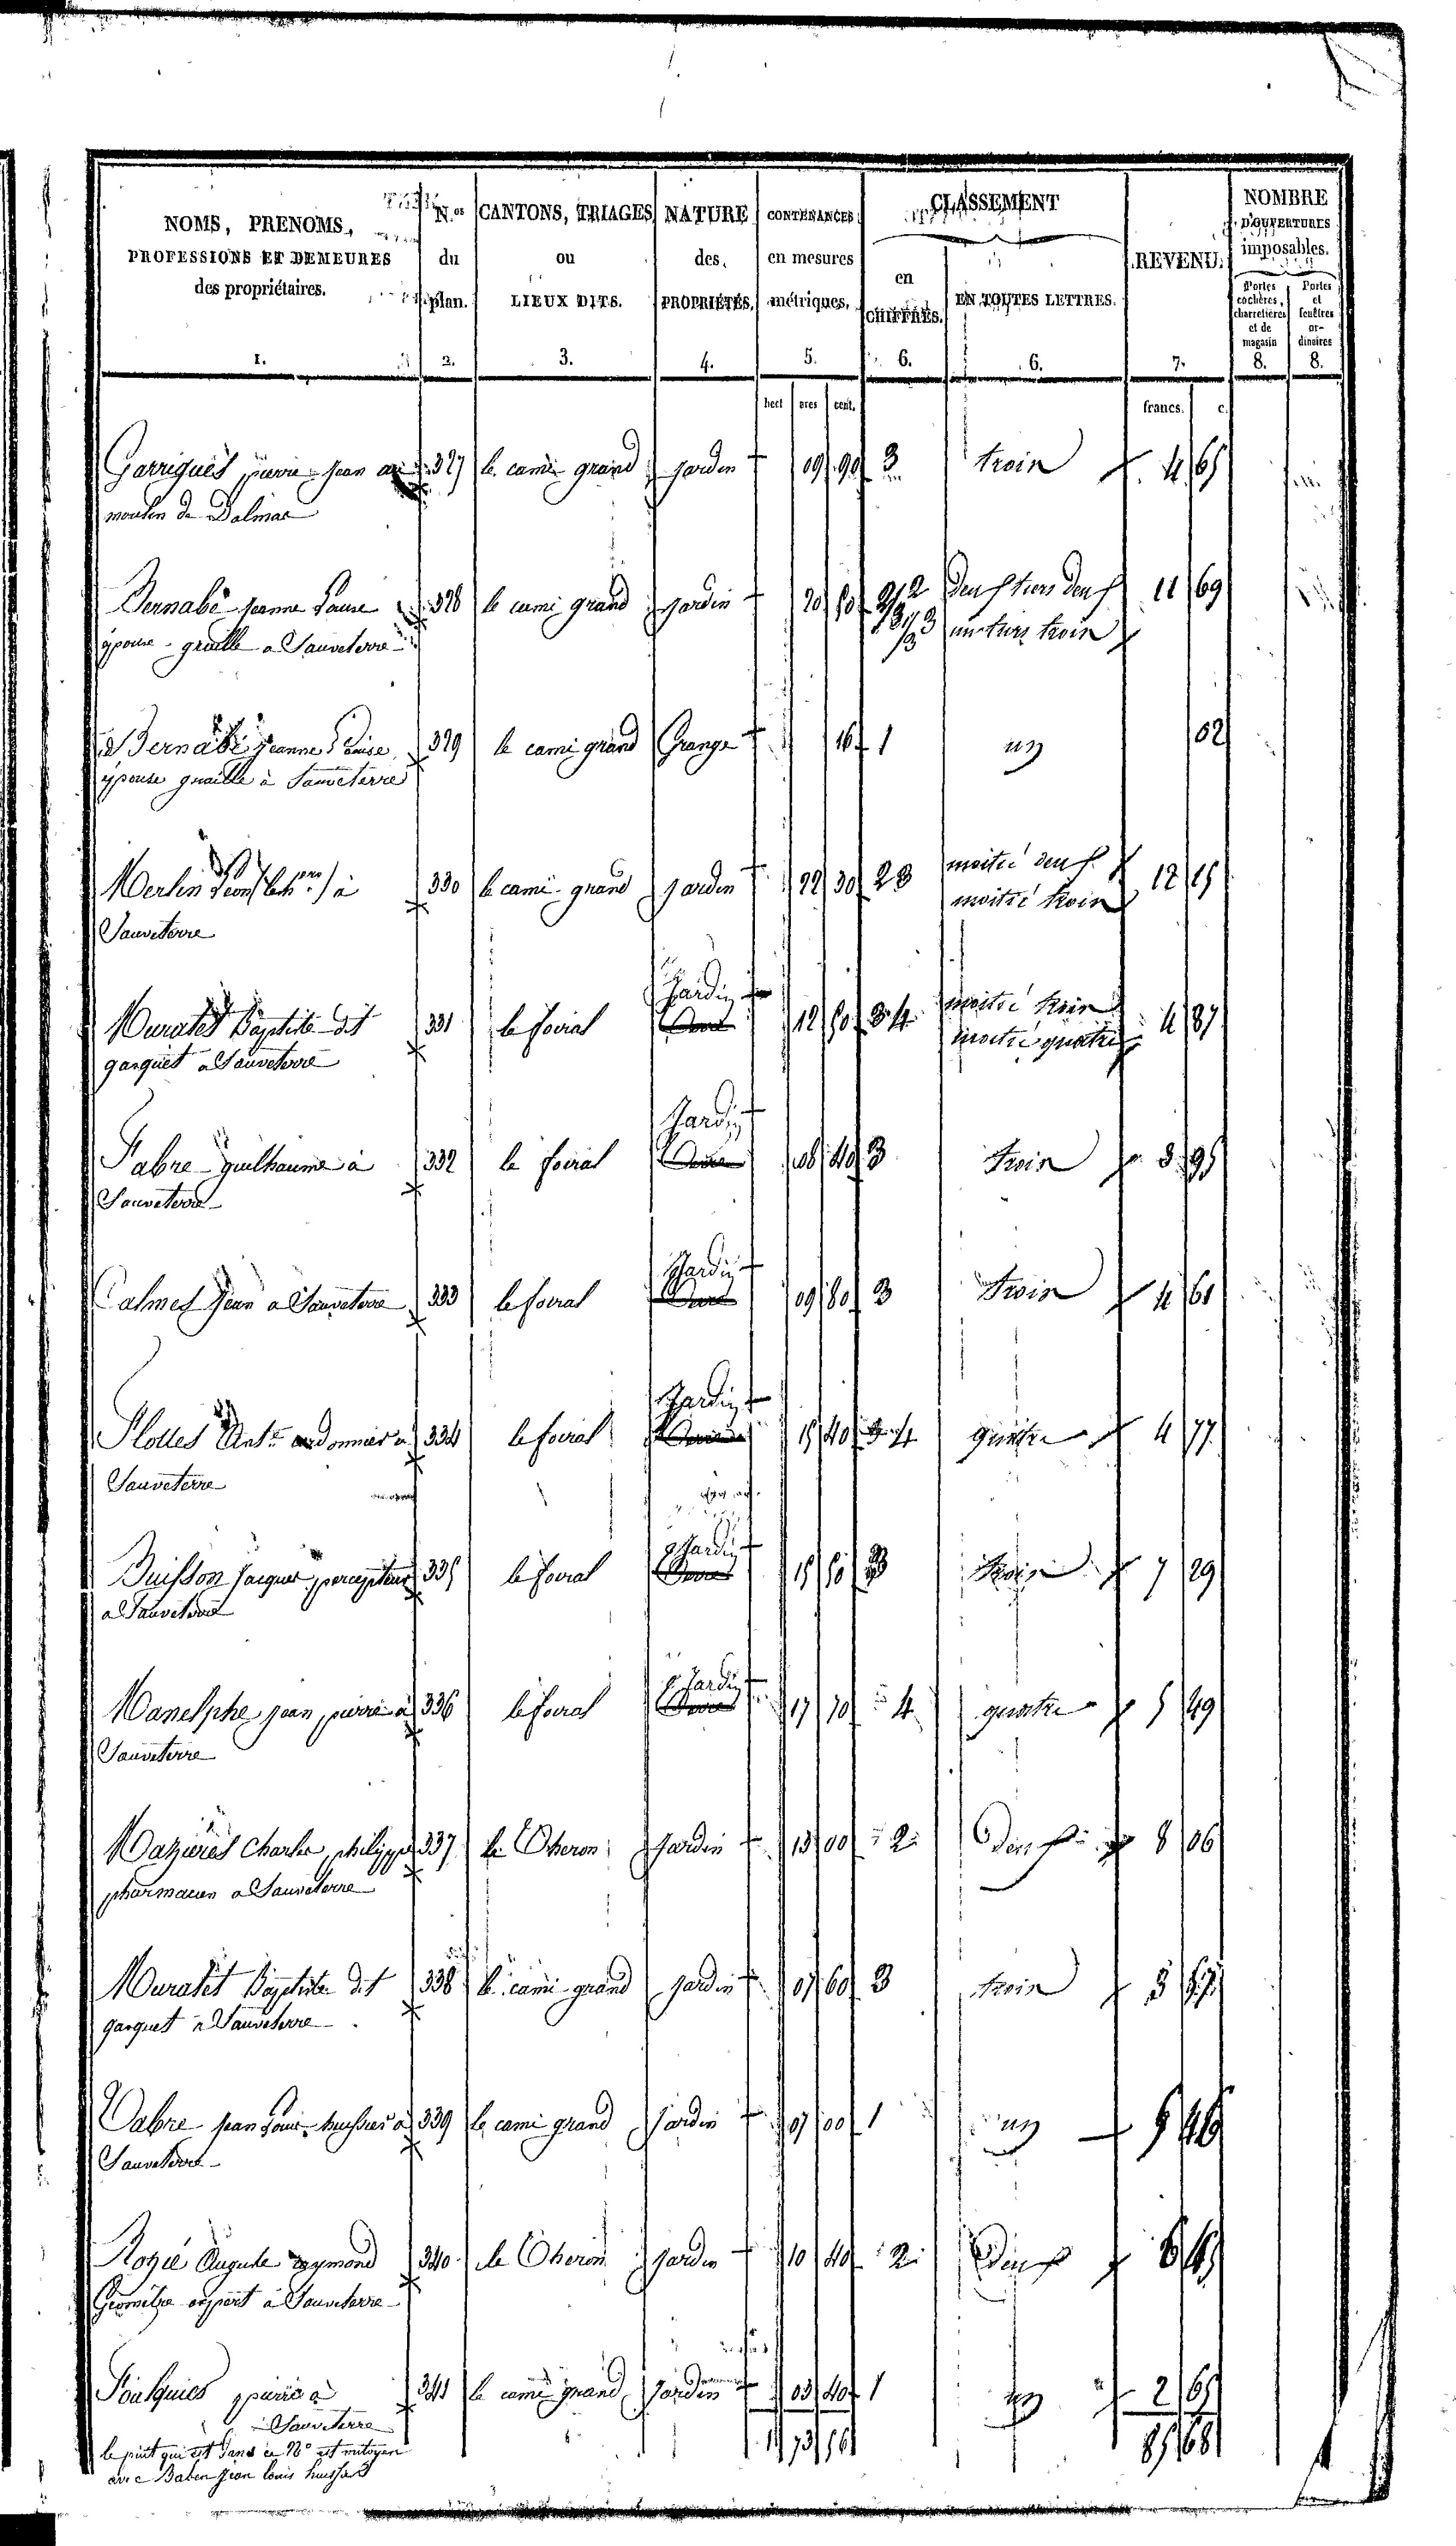 NOMS, PRENOMS, PROFESSIONS ET DEMEURES des propriétaires. 1.
N.os du plan. 2.
CANTONS, TRIAGES ou LIEUX DITS. 3.
NATURE des PROPRIÉTÉS. 4.
CONTENANCES en mesures métriques. 5.
CLASSEMENT
en CHIFFRES. 6.
EN TOUTES LETTRES. 6.
REVENU. 7.
NOMBRE D'OUVERTURES imposables.
Portes cochères, charretières et de magasin 8.
Portes et fenêtres ordinaires 8.
hect ares cent. francs. c.
Garrigues pierre jean au 327 le cami grand jardin 09 90 3 trois 4 65
moulin de Dalmac
Bernabé jeanne Louise 328 le cami grand jardin 20 80 2/3 2 deux tiers deux 11 69
épouse graille a Sauveterre 1/3 3 un tiers trois
Bernabé jeanne Louise 329 le cami grand Grange 16 1 un 02
épouse graille à Sauveterre
Merlin Léon à 330 le cami grand jardin 22 30 2 3 moitié deux 12 15
Sauveterre moitié trois
Muratet Baptiste dit 331 le foiral Jardin 12 50 3 4 moitié trois 4 87
garquet a Sauveterre moitié quatre
Fabre guilhaume à 332 le foiral Jardin 08 40 3 trois 3 95
Sauveterre
Calmes Jean a Sauveterre 333 le foiral Jardin 09 80 3 trois 4 61
Flottes Ant.e cordonnier a 334 le foiral Jardin 15 40 4 quatre 4 77
Sauveterre
Buisson jacques percepteur 335 le foiral Jardin 15 50 3 trois 7 29
a Sauveterre
Manelphe jean pierre a 336 le foiral Jardin 17 70 4 quatre 5 49
Sauveterre
Mazieres Charles philippe 337 le Théron jardin 13 00 2 Deux 8 06
pharmacien a Sauveterre
Muratet Baptiste dit 338 le cami grand jardin 07 60 3 trois 3 57
garquet a Sauveterre
Vabre jean Louis huissier a 339 le cami grand jardin 07 00 1 un 5 46
Sauveterre
Rozié Auguste raymond 340 le Théron jardin 10 40 2 Deux 6 45
Géomètre expert à Sauveterre
Foulquies pierre a 341 le cami grand jardin 03 40 1 un 2 65
Sauveterre
le puit qui est dans ce N.o est mitoyen 1 73 56 85 68
avec Jean louis huissier